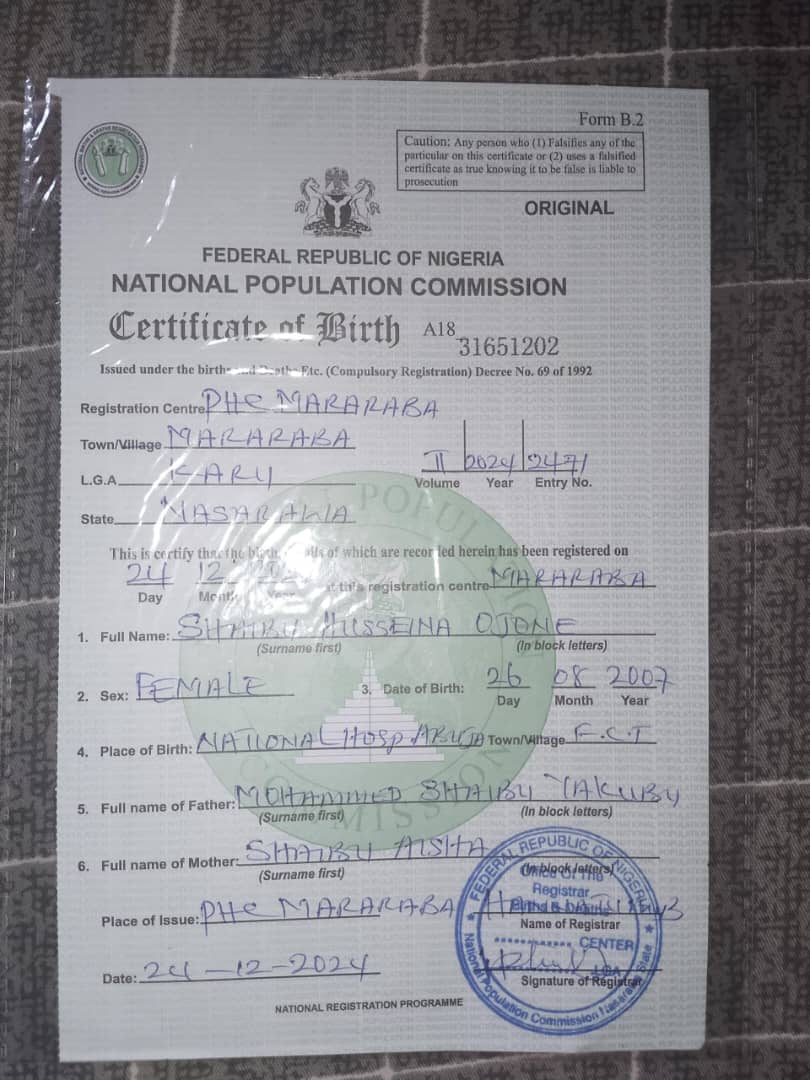 Form B.2
Caution: Any person who (1) Falsifies any of the
particular on this certificate or (2) uses a falsified
certificate as true knowing it to be false is liable to
prosecution
ORIGINAL
FEDERAL REPUBLIC OF NIGERIA
NATIONAL POPULATION COMMISSION
Certificate of Birth A18 31651202
Issued under the births and Deaths Etc. (Compulsory Registration) Decree No. 69 of 1992
Registration Centre PHC MARARABA
Town/Village MARARABA
II 2024 2471
L.G.A KARU
Volume Year Entry No.
State NASARAWA
This is certify that the birth, details of which are recorded herein has been registered on
24 12 at this registration centre MARARABA
Day Month Year
1. Full Name: SHAIBU HUSSEINA OJONE
(Surname first) (In block letters)
2. Sex: FEMALE 3. Date of Birth: 26 08 2007
Day Month Year
4. Place of Birth: NATIONAL HOSP ABUJA Town/Village F.C.T
5. Full name of Father: MOHAMMED SHAIBU YAKUBU
(Surname first) (In block letters)
6. Full name of Mother: SHAIBU AISHA
(Surname first) (In block letters)
Place of Issue: PHC MARARABA
Name of Registrar
Date: 24-12-2024
Signature of Registrar
NATIONAL REGISTRATION PROGRAMME
FEDERAL REPUBLIC OF NIGERIA
Office Of The
Registrar
CENTER
LGA
National Population Commission Nasarawa State